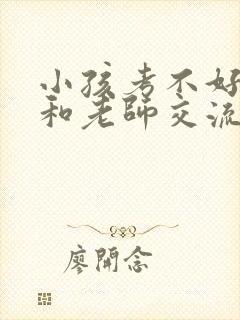 小孩考不好
和老師交流
廖開念